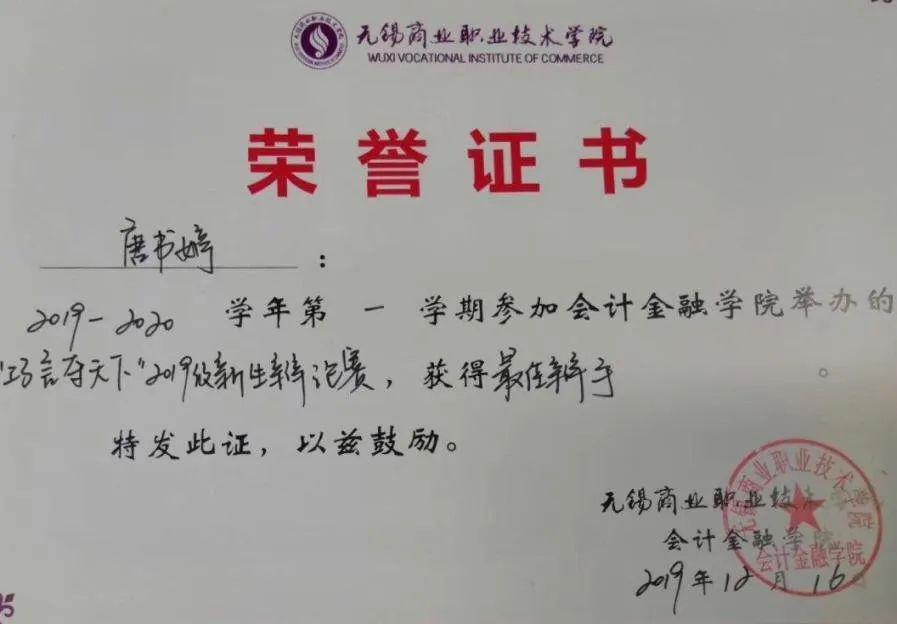 无锡商业职业技术学院
WUXI VOCATIONAL INSTITUTE OF COMMERCE
荣誉证书
唐书婷：
2019-2020 学年第一学期参加会计金融学院举办的
"巧言夺天下"2019级新生辩论赛，获得最佳辩手。
特发此证，以兹鼓励。
无锡商业职业技术学院
会计金融学院
2019年12月16日
无锡商业职业技术学院
会计金融学院